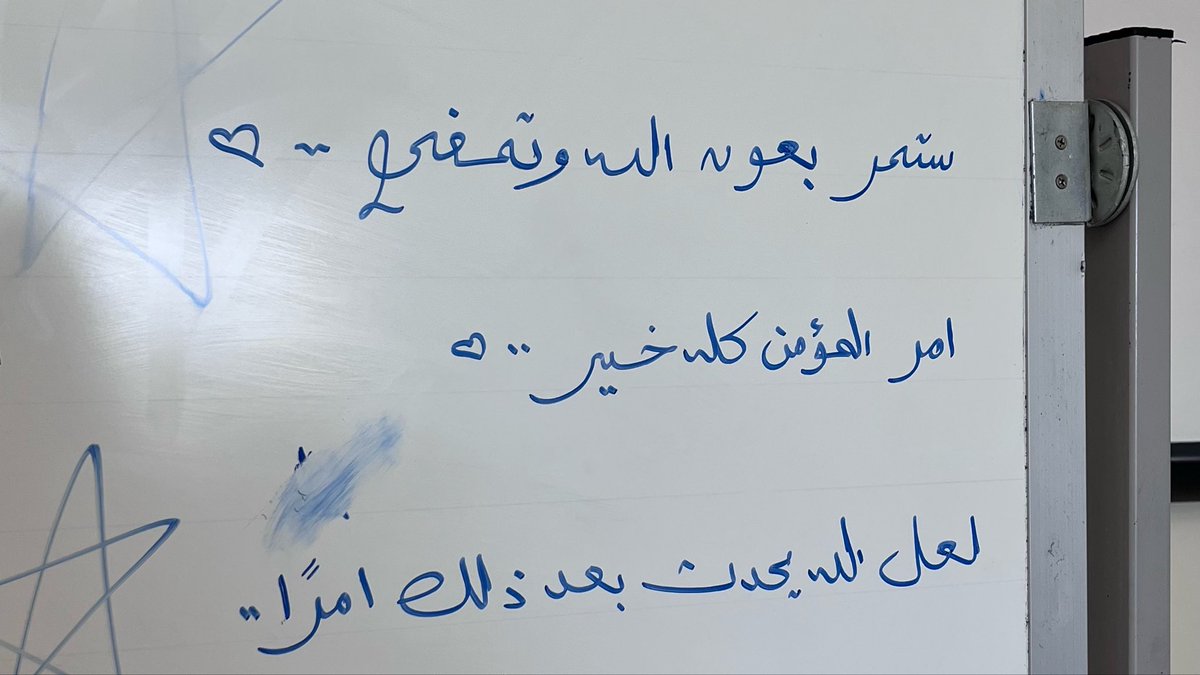 ستمر بعون الله وتمضي .. ♡
امر المؤمن كله خير .. ♡
لعل الله يحدث بعد ذلك امرًا ..